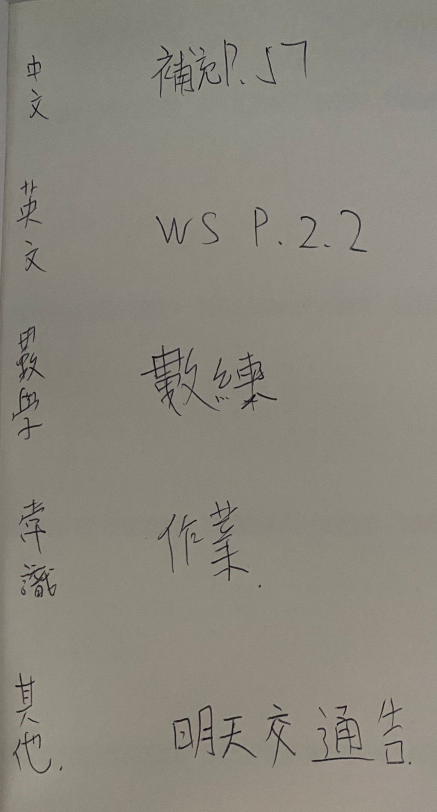 中文 補充P.57
英文 WS P.2.2
數學 數練
常識 作業.
其他. 明天交通告.